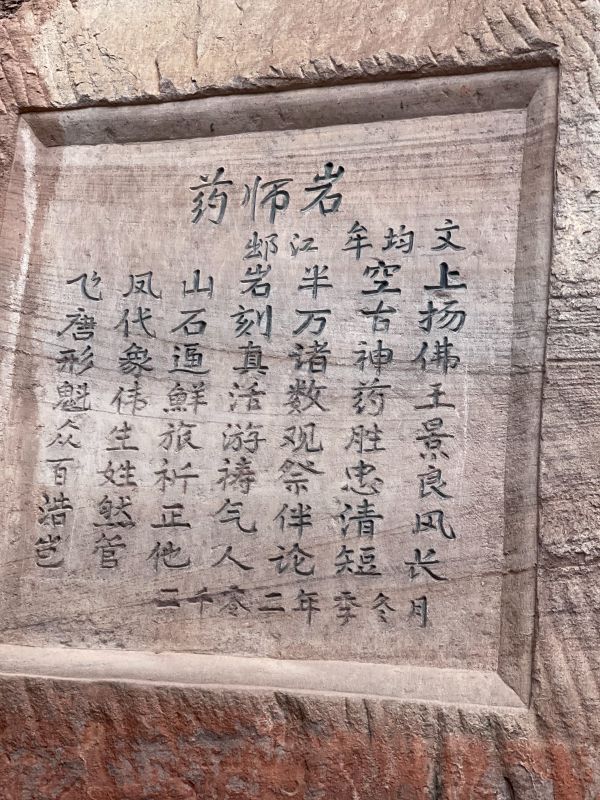 药师岩
䢺江 牟均文
飞凤山岩半空上
唐代石刻万古扬
形象逼真诸神佛
魁伟鮮活数药王
众生旅游观胜景
百姓祈禱祭忠良
浩然正气伴清风
岂管他人论短长
二千零二年季冬月